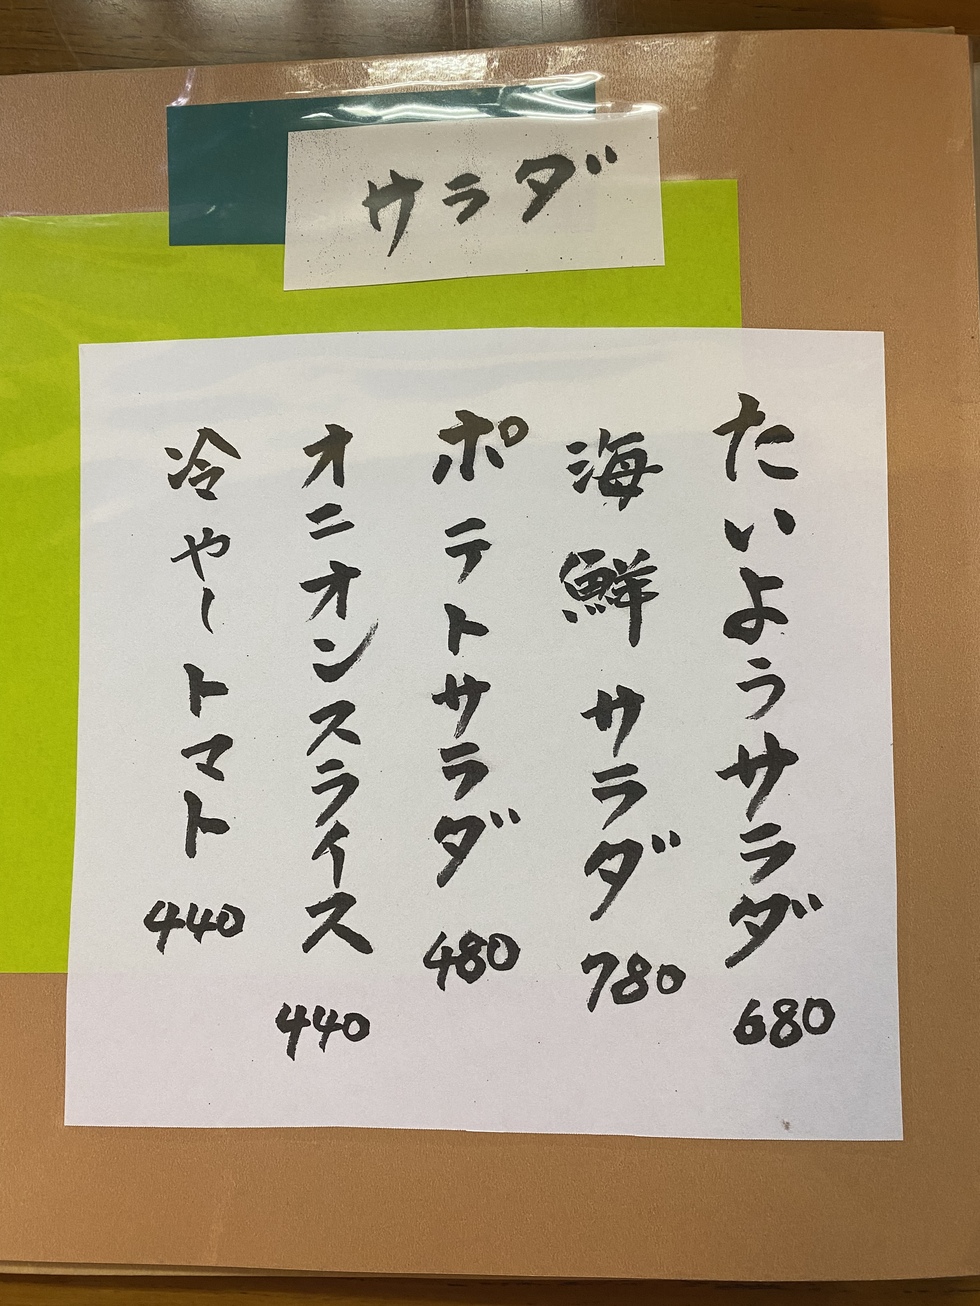 サラダ
たいようサラダ 680
海鮮サラダ 780
ポテトサラダ 480
オニオンスライス 440
冷やしトマト 440